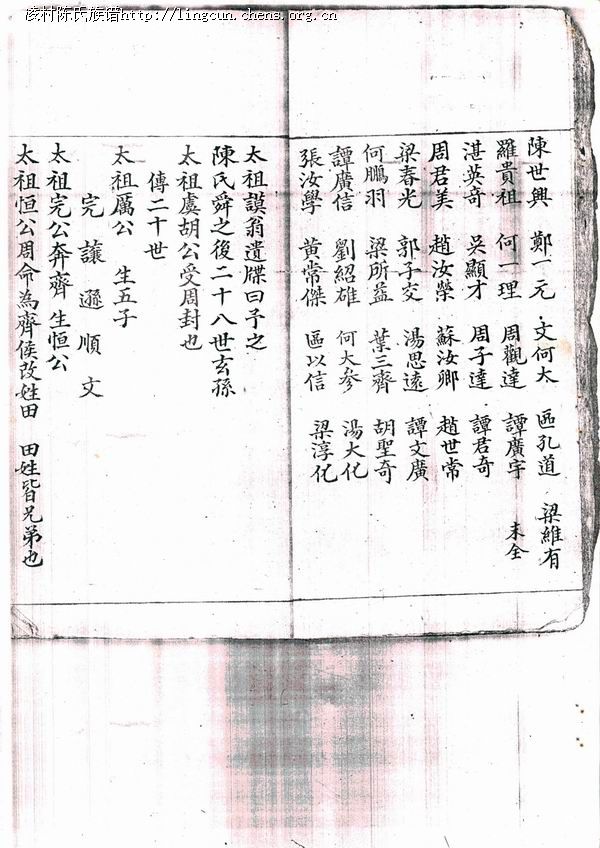 凌村陈氏族谱http://lingcun.chens.org.cn
陳世興 鄭一元 文何大 區孔道 梁維有
羅貴祖 何一理 周觀達 譚廣宇 未全
湛英奇 吳顯才 周子達 譚君奇
周君美 趙汝榮 蘇汝卿 趙世常
梁春光 郭子交 湯思遠 譚文廣
何鵬羽 梁所益 葉三齊 胡聖奇
譚廣信 劉紹雄 何大參 湯大化
張汝學 黃常傑 區以信 梁淳化
太祖謨翁遺牒曰予之
陳氏舜之後二十八世玄孫
太祖虞胡公受周封也
傳二十世
太祖厲公 生五子
完 讓 遜 順 文
太祖完公奔齊生恒公
太祖恒公周命為齊侯改姓田 田姓皆兄弟也